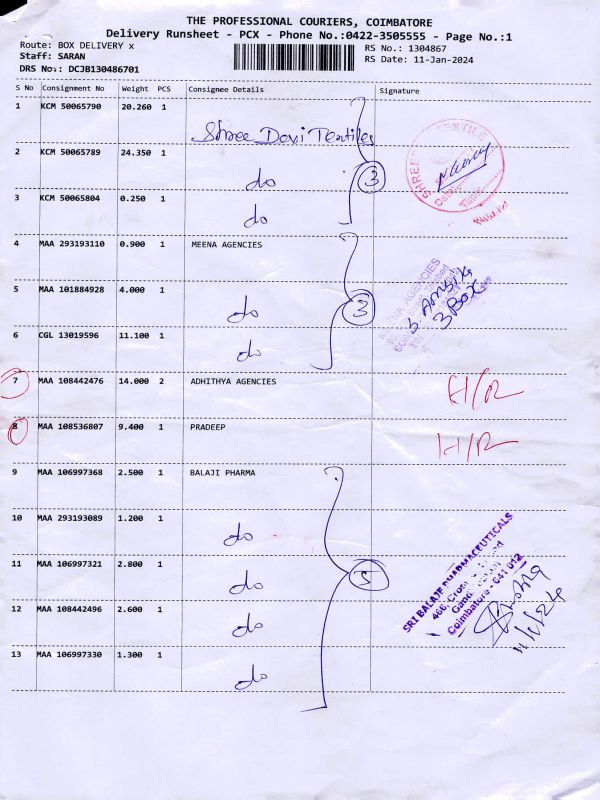 THE PROFESSIONAL COURIERS, COIMBATORE
Delivery Runsheet - PCX - Phone No.:0422-3505555 - Page No.:1
Route: BOX DELIVERY x
RS No.: 1304867
Staff: SARAN
RS Date: 11-Jan-2024
DRS No: DCJB130486701
S No Consignment No Weight PCS Consignee Details Signature
1 KCM 50065790 20.260 1 Shree Devi Textiles
2 KCM 50065789 24.350 1 do
3
3 KCM 50065804 0.250 1 do
4 MAA 293193110 0.900 1 MEENA AGENCIES
5 MAA 101884928 4.000 1 do
3
3 Box
6 CGL 13019596 11.100 1 do
7 MAA 108442476 14.000 2 ADHITHYA AGENCIES H/R
8 MAA 108536807 9.400 1 PRADEEP H/R
9 MAA 106997368 2.500 1 BALAJI PHARMA
10 MAA 293193089 1.200 1 do
11 MAA 106997321 2.800 1 do
5
12 MAA 108442496 2.600 1 do
13 MAA 106997330 1.300 1 do
SRI BALAJE PHARMACEUTICALS
Coimbatore - 641 012
11/1/24